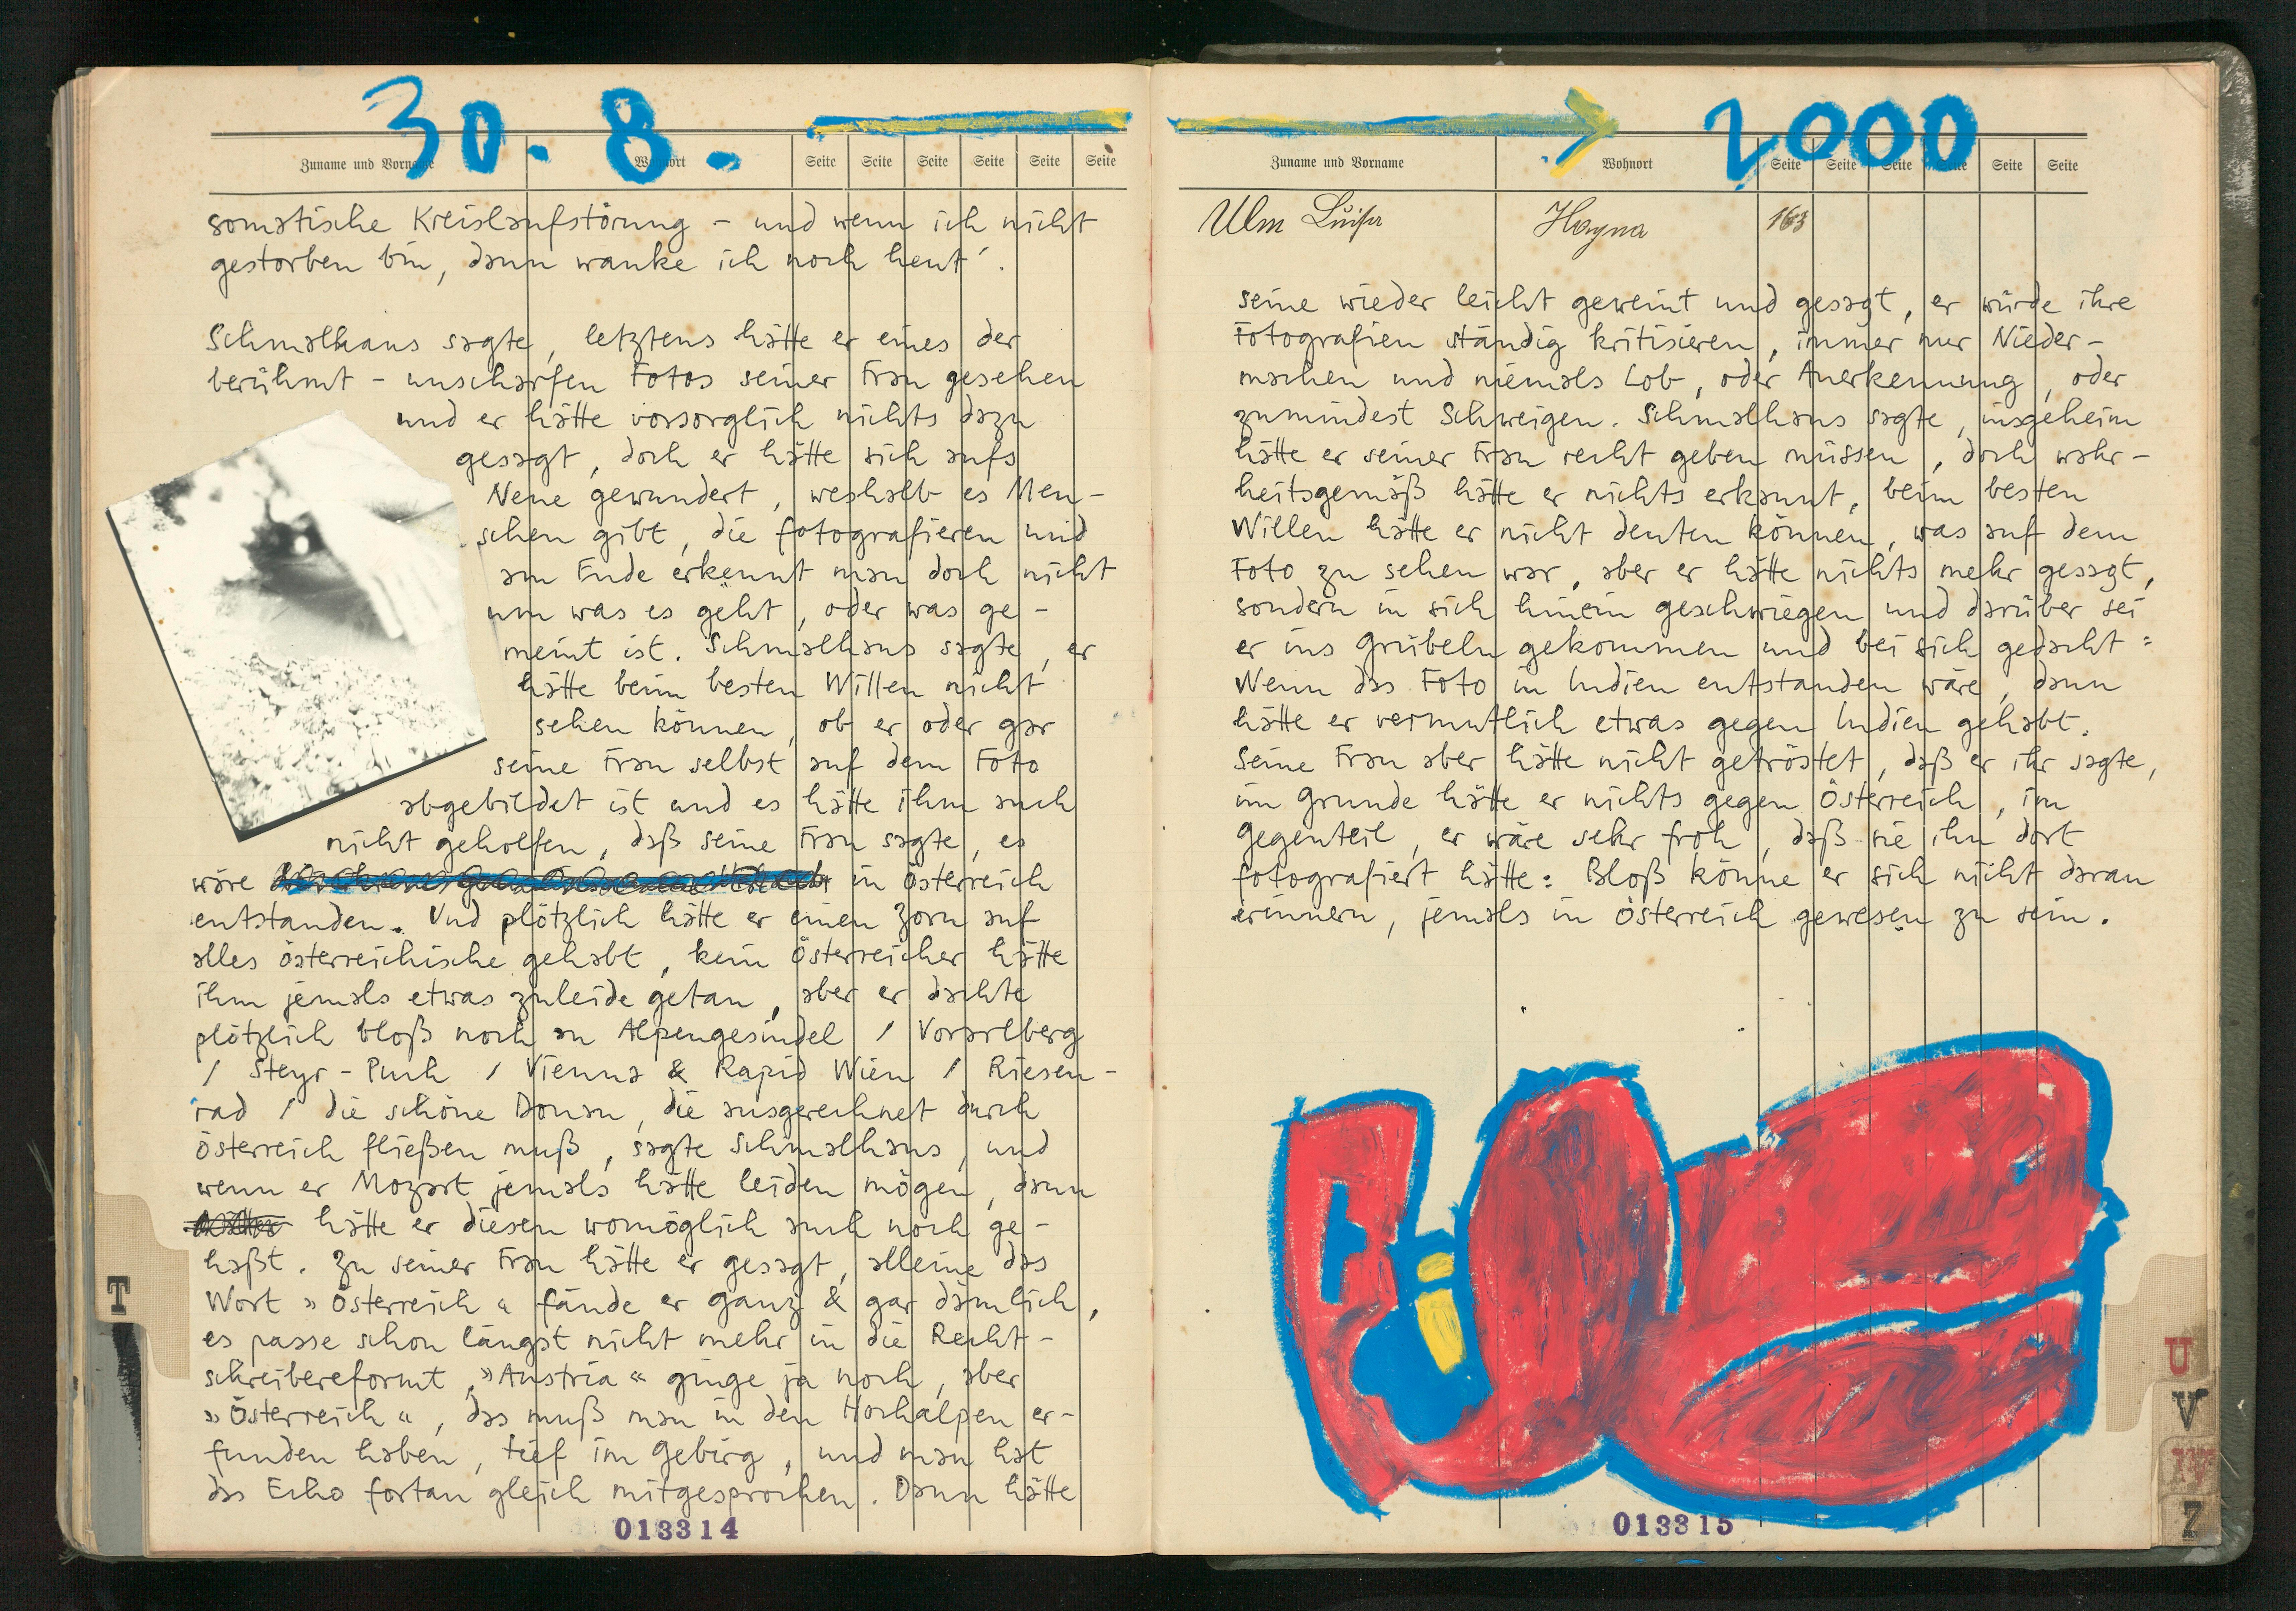 30. 8. → 2000
Zuname und Vorname Wohnort Seite Seite Seite Seite Seite Seite
somatische Kreislaufstörung – und wenn ich nicht
gestorben bin, dann wanke ich noch heut'.
Schmalhans sagte, letztens hätte er eines der
berühmt-unscharfen Fotos seiner Frau gesehen
und er hätte vorsorglich nichts dazu
gesagt, doch er hätte sich aufs
Neue gewundert, weshalb es Men-
schen gibt, die fotografieren und
am Ende erkennt man doch nicht
um was es geht, oder was ge-
meint ist. Schmalhans sagte, er
hätte beim besten Willen nicht
sehen können, ob er oder gar
seine Frau selbst auf dem Foto
abgebildet ist und es hätte ihm auch
nicht geholfen, daß seine Frau sagte, es
wäre in Österreich
entstanden. Und plötzlich hätte er einen Zorn auf
alles österreichische gehabt, kein Österreicher hätte
ihm jemals etwas zuleide getan, aber er dachte
plötzlich bloß noch an Alpengesindel / Vorarlberg
/ Steyr-Puch / Vienna & Rapid Wien / Riesen-
rad / die schöne Donau, die ausgerechnet durch
Österreich fließen muß, sagte Schmalhans, und
wenn er Mozart jemals hätte leiden mögen, dann
hätte er diesen womöglich auch noch ge-
haßt. Zu seiner Frau hätte er gesagt, alleine das
Wort »Österreich« fände er ganz & gar dämlich,
es passe schon längst nicht mehr in die Recht-
schreibereformt, »Austria« ginge ja noch, aber
»Österreich«, das muß man in den Hochalpen er-
funden haben, tief im Gebirg, und man hat
das Echo fortan gleich mitgesprochen. Dann hätte
013314
T
Zuname und Vorname Wohnort Seite Seite Seite Seite Seite Seite
Ulm Luisa Hayna 163
seine wieder leicht geweint und gesagt, er würde ihre
Fotografien ständig kritisieren, immer nur Nieder-
machen und niemals Lob, oder Anerkennung, oder
zumindest Schweigen. Schmalhans sagte, insgeheim
hätte er seiner Frau recht geben müssen, doch wahr-
heitsgemäß hätte er nichts erkannt, beim besten
Willen hätte er nicht deuten können, was auf dem
Foto zu sehen war, aber er hätte nichts mehr gesagt,
sondern in sich hinein geschwiegen und darüber sei
er ins Grübeln gekommen und bei sich gedacht:
Wenn das Foto in Indien entstanden wäre, dann
hätte er vermutlich etwas gegen Indien gehabt.
Seine Frau aber hätte nicht getröstet, daß er ihr sagte,
im Grunde hätte er nichts gegen Österreich, im
Gegenteil, er wäre sehr froh, daß sie ihn dort
fotografiert hätte: Bloß könne er sich nicht daran
erinnern, jemals in Österreich gewesen zu sein.
013315
U
V
W
Z